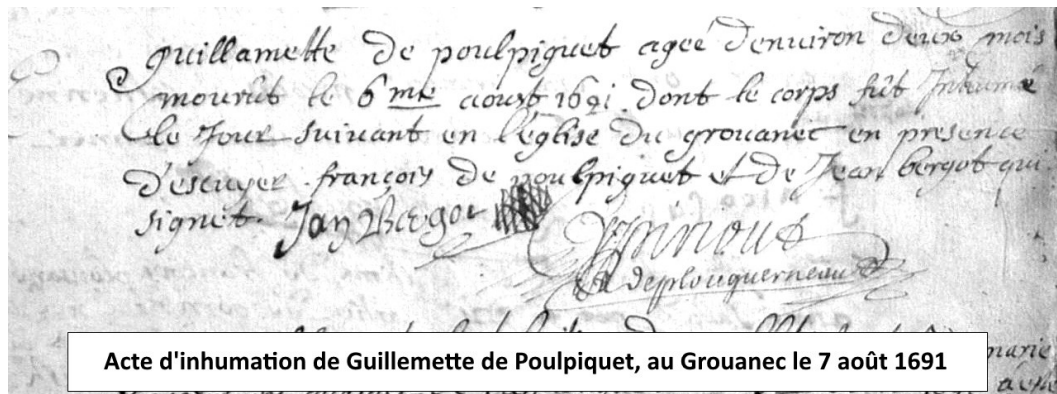 guillamette de poulpiguet ageé d'enuiron deux mois
mourut le 6me aoust 1691. dont le corps fût Inhumé
le Jour suiuant en l'église du grouanec en presence
d'escuyer françois de poulpiguet et de Jean bergot qui
signet. Jan Bergot
deplouguerneau
Acte d'inhumation de Guillemette de Poulpiquet, au Grouanec le 7 août 1691
marie